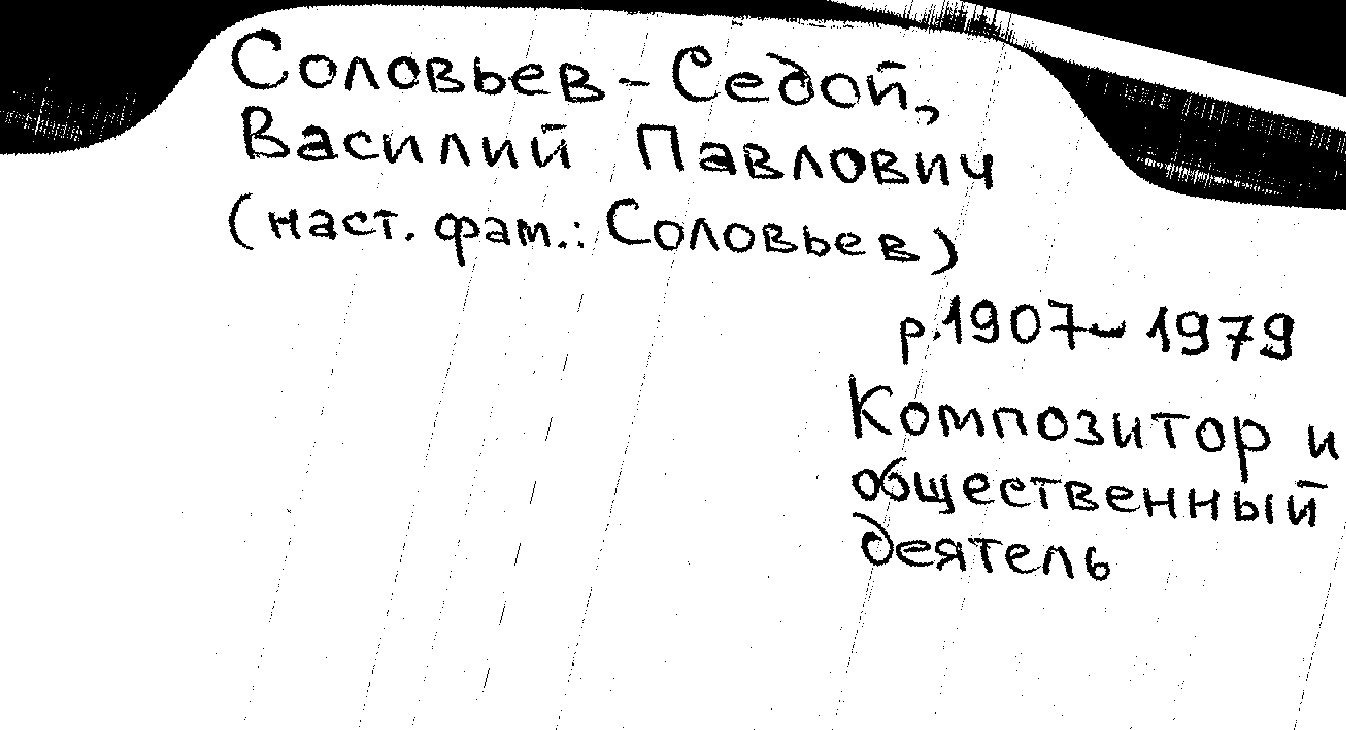 Соловьев-Седой,
Василий Павлович
(наст. фам.: Соловьев)
р.1907-1979
Композитор и
общественный
деятель